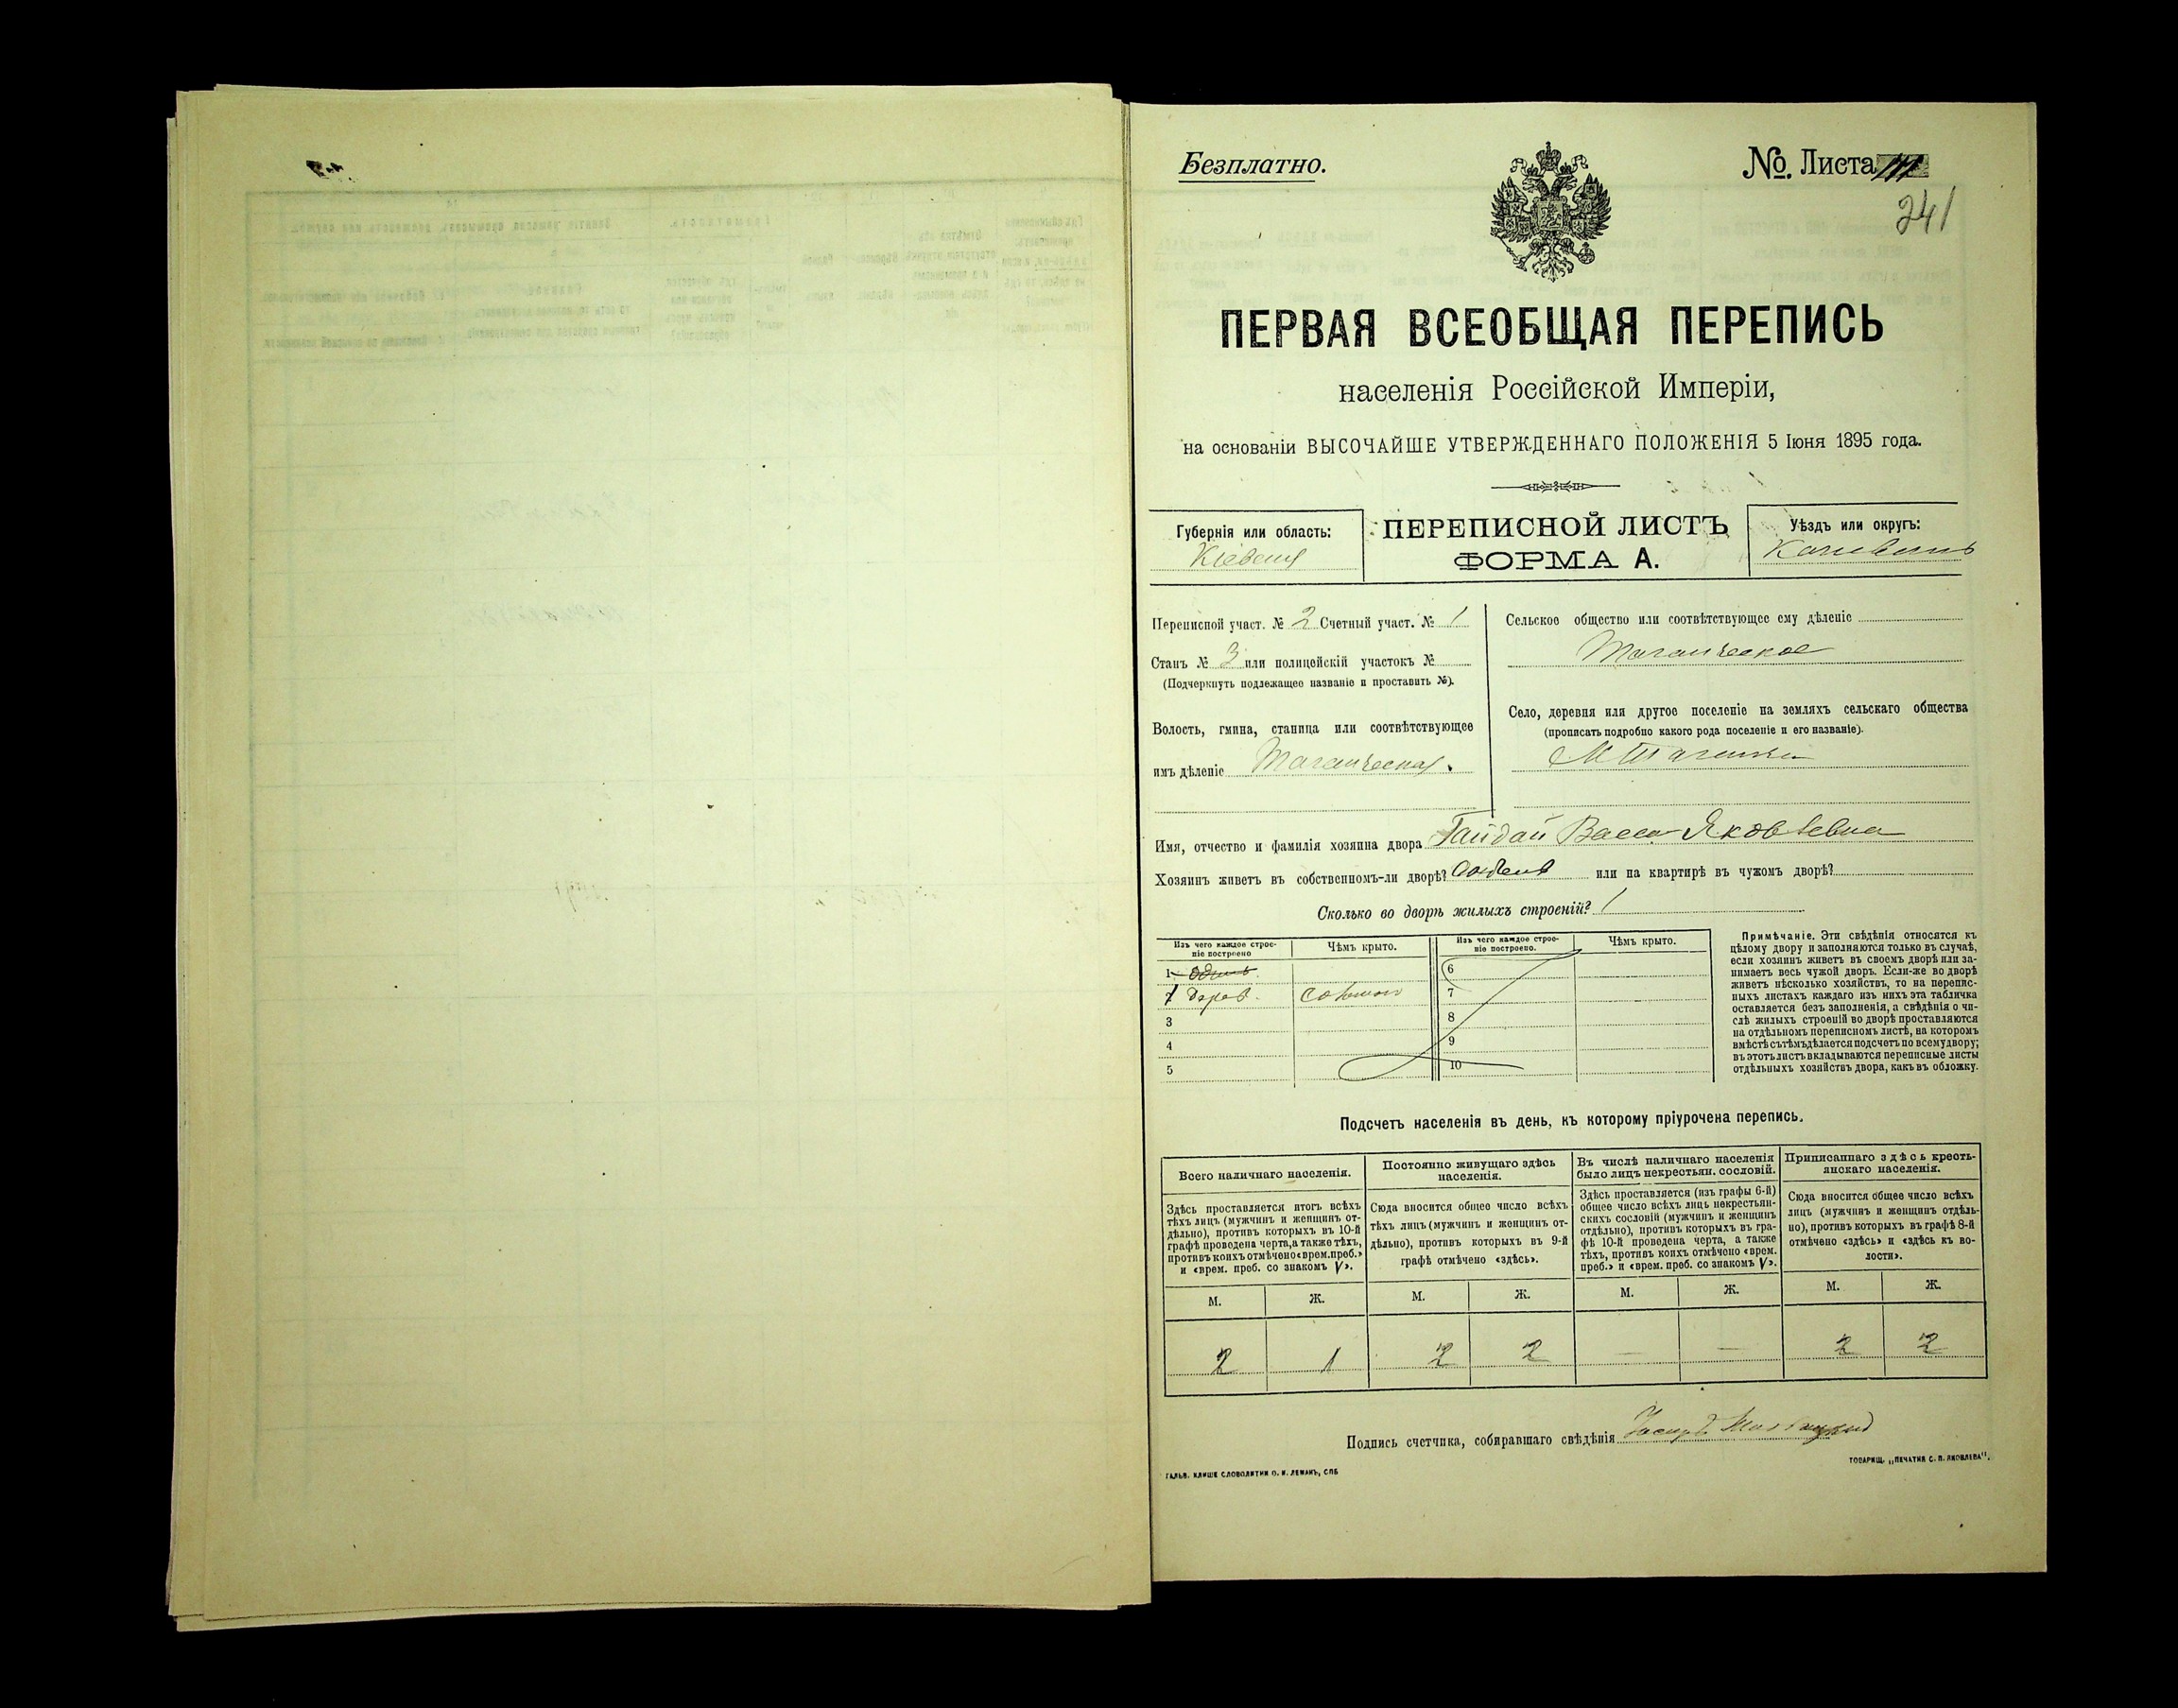 Безплатно.
№. Листа
241
ПЕРВАЯ ВСЕОБЩАЯ ПЕРЕПИСЬ
населенія Россійской Имперіи,
на основаніи ВЫСОЧАЙШЕ УТВЕРЖДЕННАГО ПОЛОЖЕНІЯ 5 Іюня 1895 года.
Губернія или область:
Кіевская
ПЕРЕПИСНОЙ ЛИСТЪ
ФОРМА А.
Уѣздъ или округъ:
Каневскій
Переписной участ. № 2 Счетный участ. № 1
Станъ № 3 или полицейскій участокъ №
(Подчеркнуть подлежащее названіе и проставить №).
Волость, гмина, станица или соотвѣтствующее
имъ дѣленіе Таганческая.
Сельское общество или соотвѣтствующее ему дѣленіе
Таганческое
Село, деревня или другое поселеніе на земляхъ сельскаго общества
(прописать подробно какого рода поселеніе и его названіе).
М Таганча
Имя, отчество и фамилія хозяина двора Гайдай Васса Яковлевна
Хозяинъ живетъ въ собственномъ-ли дворѣ? или на квартирѣ въ чужомъ дворѣ?
Сколько во дворѣ жилыхъ строеній? 1
Изъ чего каждое строе-
ніе построено
Чѣмъ крыто.
Изъ чего каждое строе-
ніе построено.
Чѣмъ крыто.
1 одинъ
дерев. соломой
3
4
5
6
7
8
9
10
Примѣчаніе. Эти свѣдѣнія относятся къ
цѣлому двору и заполняются только въ случаѣ,
если хозяинъ живетъ въ своемъ дворѣ или за-
нимаетъ весь чужой дворъ. Если-же во дворѣ
живетъ нѣсколько хозяйствъ, то на перепис-
ныхъ листахъ каждаго изъ нихъ эта табличка
оставляется безъ заполненія, а свѣдѣнія о чи-
слѣ жилыхъ строеній во дворѣ проставляются
на отдѣльномъ переписномъ листѣ, на которомъ
вмѣстѣ съ тѣмъ дѣлается подсчетъ по всему двору;
въ этотъ листъ вкладываются переписные листы
отдѣльныхъ хозяйствъ двора, какъ въ обложку.
Подсчетъ населенія въ день, къ которому пріурочена перепись.
Всего наличнаго населенія.
Здѣсь проставляется итогъ всѣхъ
тѣхъ лицъ (мужчинъ и женщинъ от-
дѣльно), противъ которыхъ въ 10-й
графѣ проведена черта, а также тѣхъ,
противъ коихъ отмѣчено «врем. преб.»
и «врем. преб. со знакомъ V».
Постоянно живущаго здѣсь
населенія.
Сюда вносится общее число всѣхъ
тѣхъ лицъ (мужчинъ и женщинъ от-
дѣльно), противъ которыхъ въ 9-й
графѣ отмѣчено «здѣсь».
Въ числѣ наличнаго населенія
было лицъ некрестьян. сословій.
Здѣсь проставляется (изъ графы 6-й)
общее число всѣхъ лицъ некрестьян-
скихъ сословій (мужчинъ и женщинъ
отдѣльно), противъ которыхъ въ гра-
фѣ 10-й проведена черта, а также
тѣхъ, противъ коихъ отмѣчено «врем.
преб.» и «врем. преб. со знакомъ V».
Приписаннаго здѣсь кресть-
янскаго населенія.
Сюда вносится общее число всѣхъ
лицъ (мужчинъ и женщинъ отдѣль-
но), противъ которыхъ въ графѣ 8-й
отмѣчено «здѣсь» и «здѣсь къ во-
лости».
М. Ж. М. Ж. М. Ж. М. Ж.
2 1 2 2 — — 2 2
Подпись счетчика, собиравшаго свѣдѣнія
ГАЛЬВ. КЛИШЕ СЛОВОЛИТНИ О. И. ЛЕМАНЪ, СПБ
ТОВАРИЩ. „ПЕЧАТНЯ С. П. ЯКОВЛЕВА".